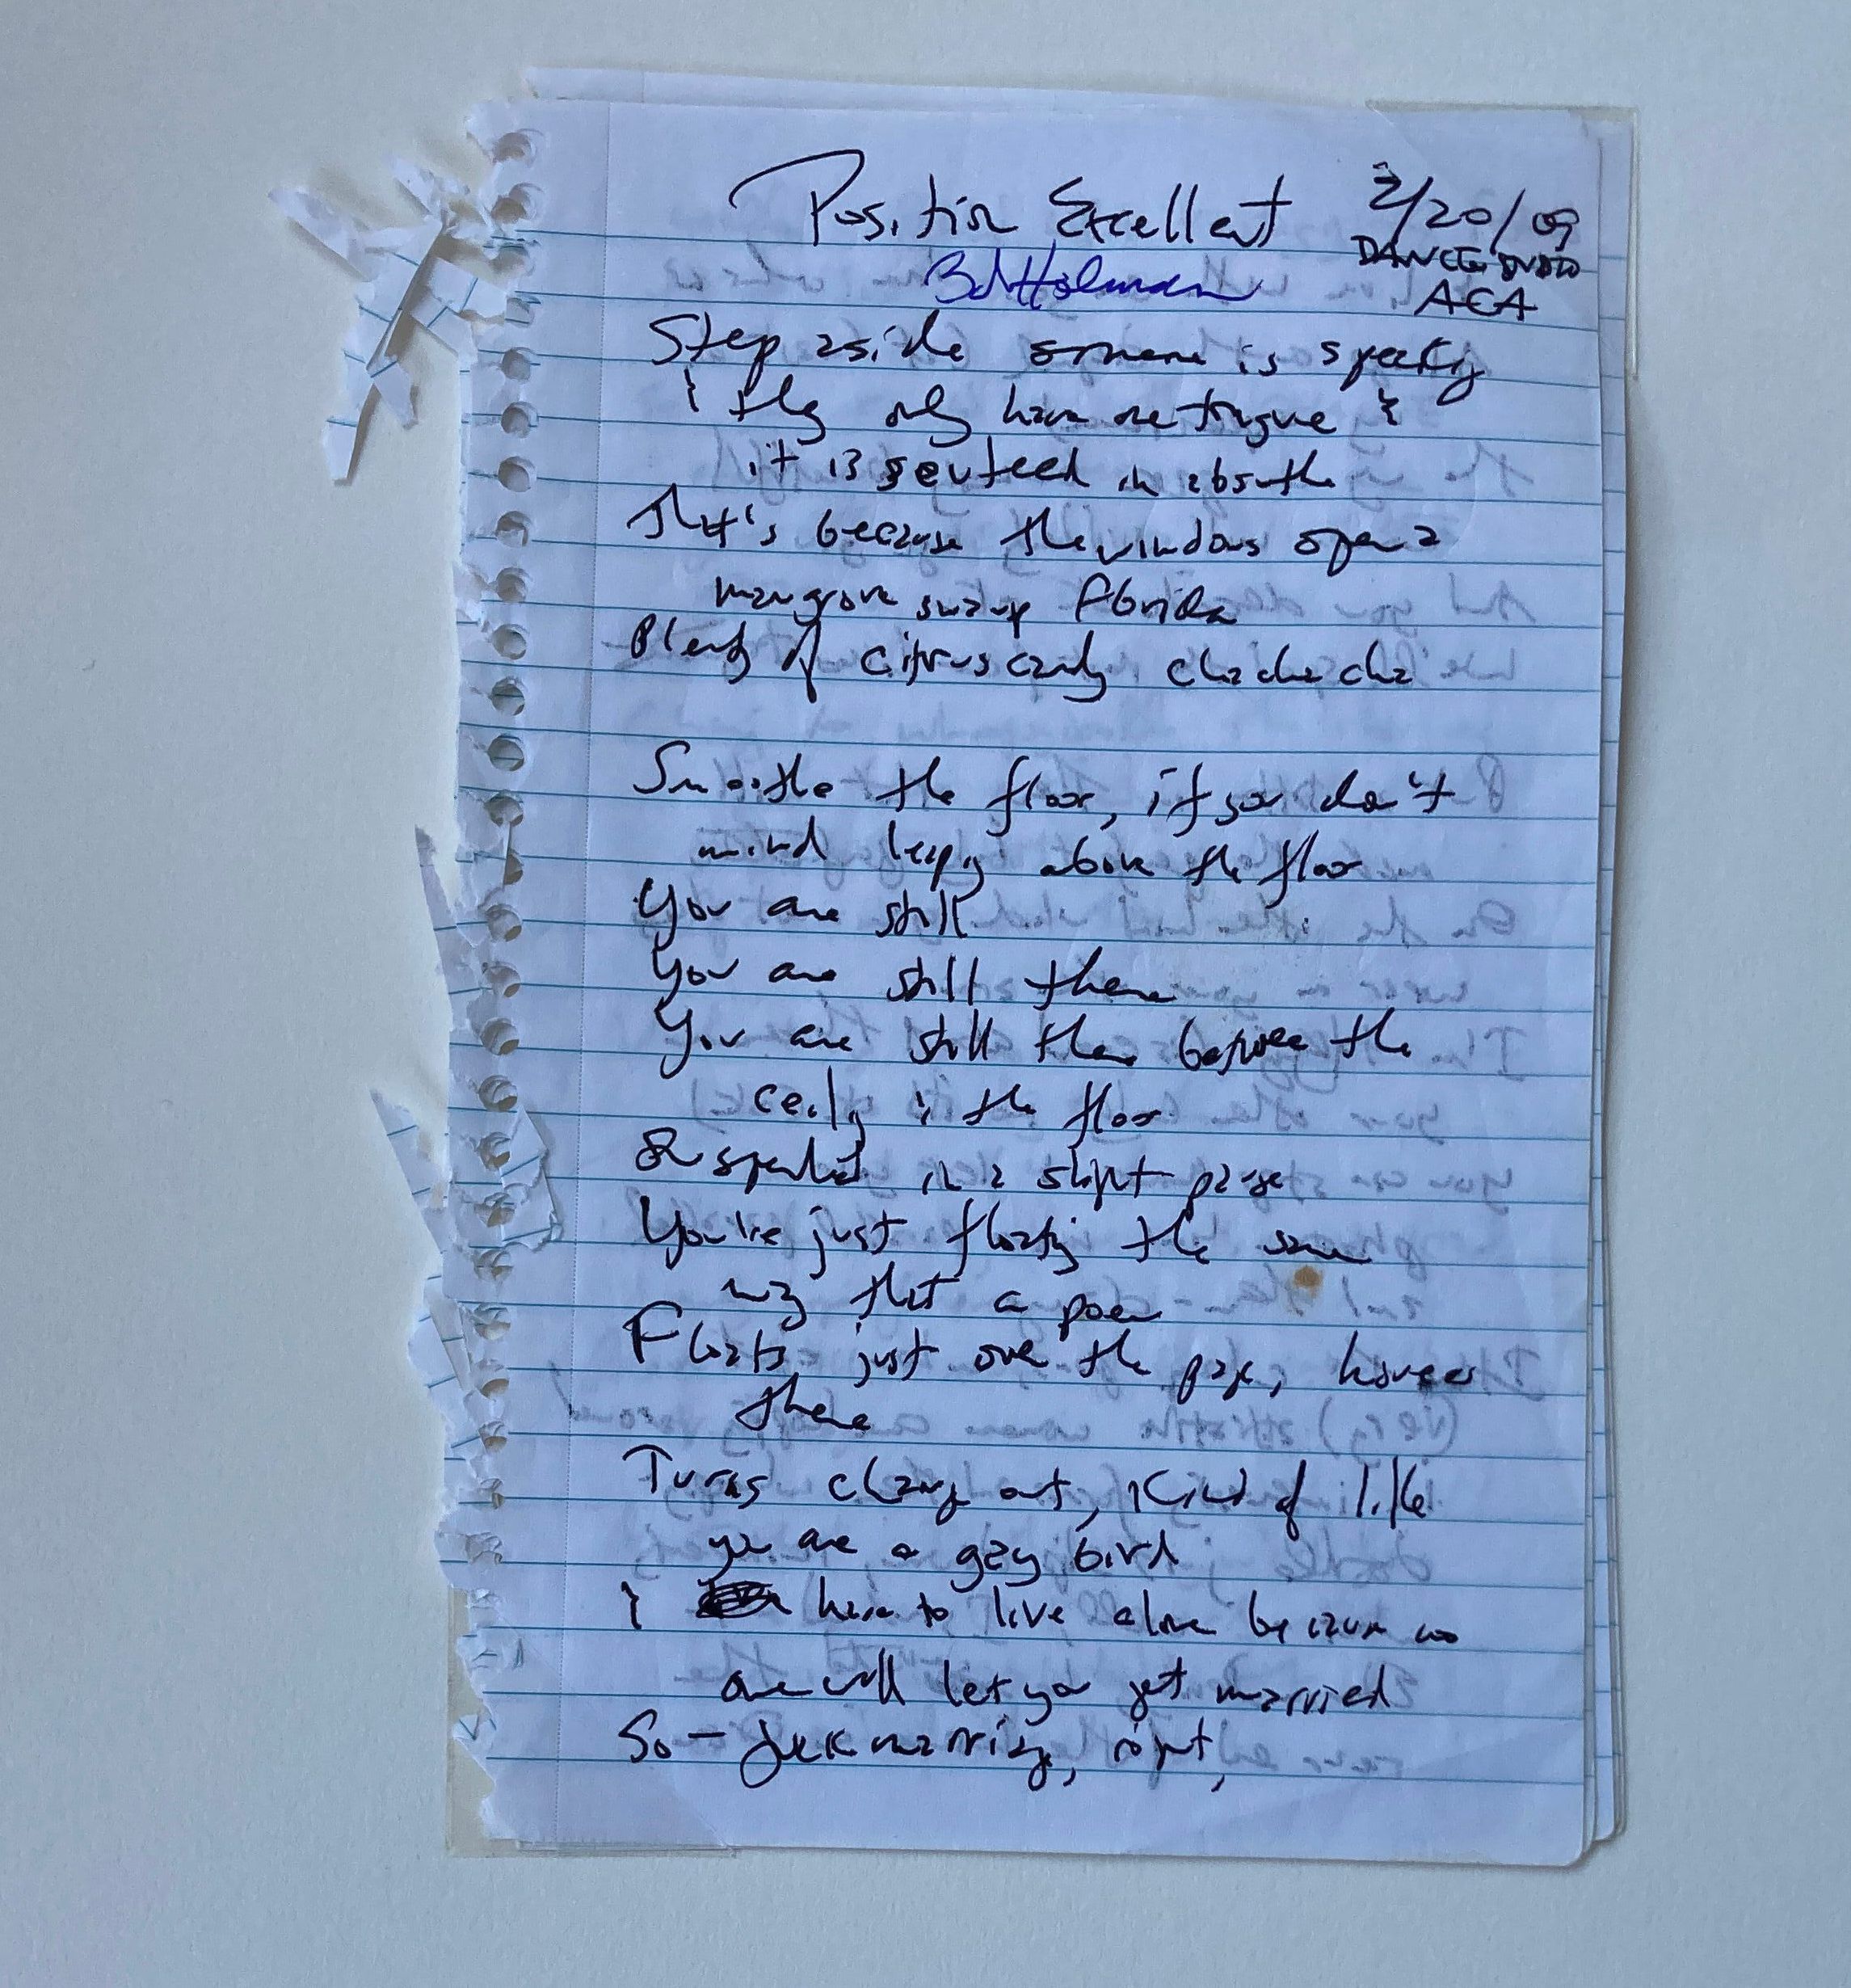 Position Excellent 2/20/09
Bob Holman DANCE STUDIO
ACA
Step aside someone is speaking
& they only have one tongue &
it is in absinthe
That's because the windows open a
mangrove swamp Florida
Plenty of citrus candy cha cha cha
Smoothe the floor, if you don't
mind leaping above the floor
You are still
You are still there
You are still there between the
ceiling & the floor
in a slight
You're just floating the same
way that a poem
Floats just over the page, hovers
there
Turns change out, kind of like
you are a gay bird
& have to live alone because no
one will let you get married
So - marriage, right,